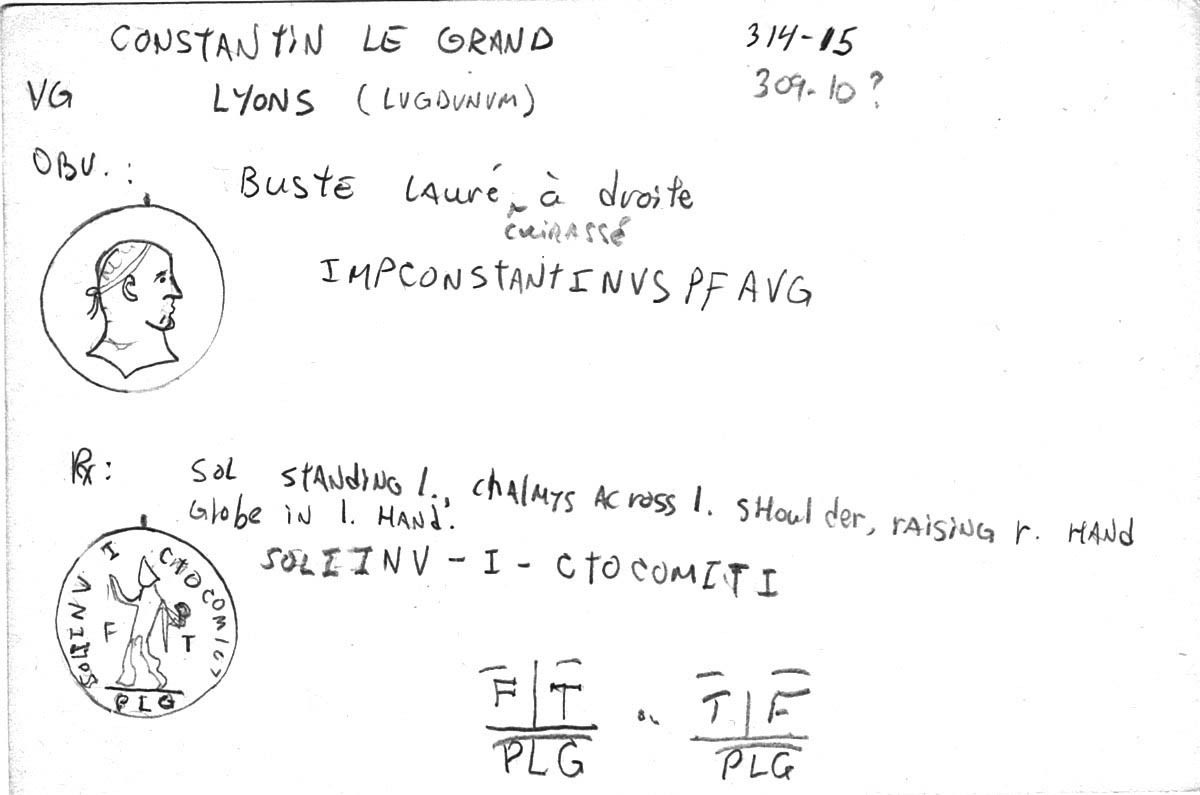 CONSTANTIN LE GRAND 314-15
VG LYONS (LUGDUNUM) 309-10?
OBV.: BUSTE LAURÉ ^ à droite
CUIRASSÉ
IMPCONSTANTINVS PF AVG
Rx: SOL STANDING l., CHALMYS ACROSS l. SHOULDER, RAISING r. HAND
Globe in l. HAND.
SOLIINV - I - CTOCOMITI
SOLIINV I CTOCOMITI
F T
PLG
F | T ou T | F
PLG PLG